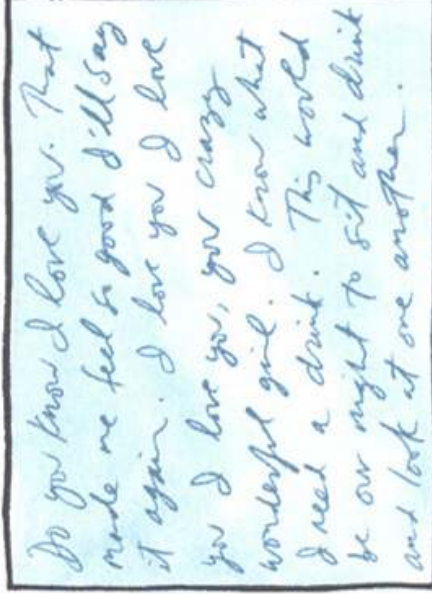 Do you know I love you. That
made me feel so good I'll say
it again. I love you I love
you I love you, you crazy
wonderful girl. I know what
I need a drink. This would
be our night to sit and drink
and look at one another.